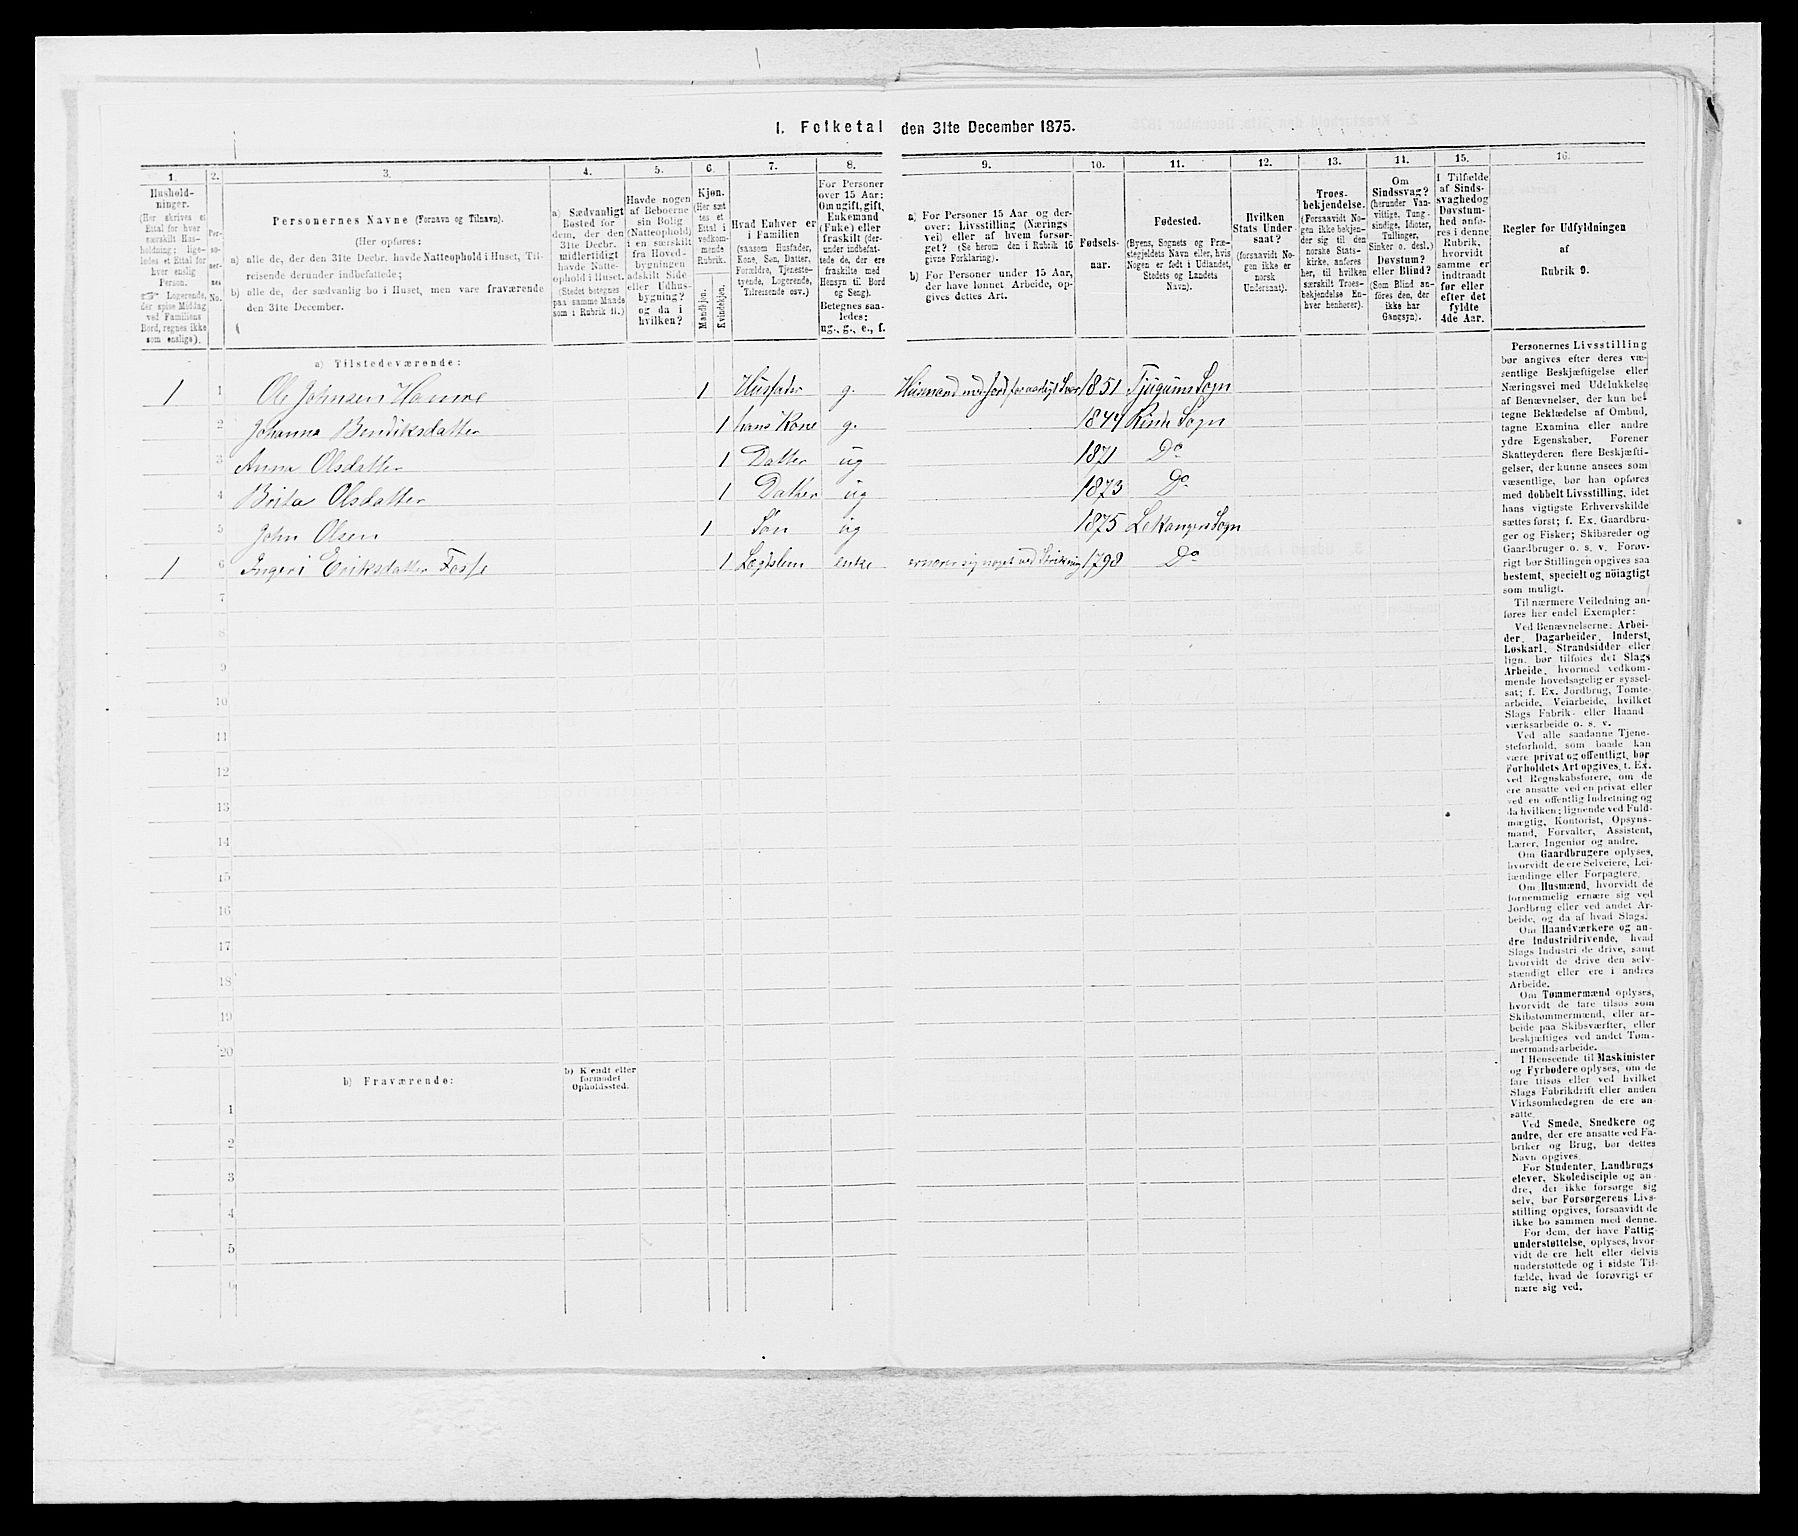 I. Folketal den 31te December 1875.
1. 2. 3. 4. 5. 6. 7. 8. 9. 10. 11. 12. 13. 14. 15. 16.
Hushold-
ninger.
(Her skrives et
Ettal for hver
særskilt Hus-
holdning; lige-
ledes et Ettal for
hver enslig
Person.
Logerende,
der spise Middag
ved Familiens
Bord, regnes ikke
som enslige).
Per-
so-
ner-
nes
No.
Personernes Navne (Fornavn og Tilnavn).
(Her opføres:
a) alle de, der den 31te Decbr. havde Natteophold i Huset, Til-
reisende derunder indbefattede;
b) alle de, der sædvanlig bo i Huset, men vare fraværende
den 31te December.
a) Sædvanligt
Bosted for
dem, der den
31te Decbr.
midlertidigt
havde Natte-
ophold i Huset.
(Stedet betegnes
paa samme Maade
som i Rubrik 11.)
Havde nogen
af Beboerne
sin Bolig
(Natteophold)
i en særskilt
fra Hoved-
bygningen
adskilt Side-
eller Udhus-
bygning?
og da i
hvilken?
Kjøn.
(Her sæt
tes et
Ettal i
vedkom-
mende
Rubrik.
Mandkjøn.
Kvindekjøn.
Hvad Enhver er
i Familien
(saasom Husfader,
Kone, Søn, Datter,
Forældre, Tjeneste-
tyende, Logerende,
Tilreisende osv.)
For Personer
over 15 Aar:
Om ugift, gift,
Enkemand
(Enke) eller
fraskilt (der-
under indbefat-
tede de, der ere
fraskilte med
Hensyn til Bord
og Seng).
Betegnes saa-
ledes:
ug., g., e., f.
a) For Personer 15 Aar og der-
over: Livsstilling (Nærings
vei) eller af hvem forsør-
get? (Se herom den i Rubrik 16
givne Forklaring).
b) For Personer under 15 Aar,
der have lønnet Arbeide, op-
gives dettes Art.
Fødsels-
aar.
Fødested.
(Byens, Sognets og Præ-
stegjeldets Navn eller, hvis
Nogen er født i Udlandet,
Stedets og Landets
Navn).
Hvilken
Stats Under-
saat?
(forsaavidt No-
gen ikke er
norsk
Undersaat).
Troes-
bekjendelse.
(Forsaavidt No-
gen ikke bekjen-
der sig til den
norske Stats-
kirke, anføres
her, til hvilken
særskilt Troes-
bekjendelse En-
hver henhører).
Om
Sindssvag?
(herunder Van-
vittige, Tung-
sindige, Idioter,
Tullinger,
Sinker o. desl.)
Døvstum?
eller Blind?
(Som Blind an-
føres den, der
ikke har
Gangsyn).
I Tilfælde
af Sinds-
svaghed og
Døvstum-
hed anfø-
res i denne
Rubrik,
hvorvidt
samme er
indtraadt
før eller
efter det
fyldte
4de Aar.
Regler før Udfyldningen
af
Rubrik 9.
a) Tilstedeværende:
1 1 Ole Johnsen Hamre 1 Husfader g. Husmand med Jord 1851 Tjugum Sogn
2 Johanna Bendiksdatter 1 hans Kone g. 1844 Rinde Sogn
3 Anna Olsdatter 1 Datter ug 1871 Do
4 Brita Olsdatter 1 Datter ug 1873 Do
5 John Olsen 1 Søn ug 1875 Lekanger Sogn
1 6 Ingeri Eriksdatter Fosse 1 Logi enke ernærer sig noget ved Strikning 1798 Do
7
8
9
10
11
12
13
14
15
16
17
18
19
20
b) Fraværende:
b) Kjendt eller
formodet
Opholdssted.
1
2
3
4
5
6
Personernes Livsstilling
bør angives efter deres væ-
sentlige Beskjæftigelse eller
Næringsvei med Udelukkelse
af Benævnelser, der kun be-
tegne Beklædelse af Ombud,
tagne Examina eller andre
ydre Egenskaber. Forener
Skatteyderen flere Beskjæfti-
gelser, der kunne ansees som
væsentlige, bør han opføres
med dobbelt Livsstilling, idet
hans vigtigste Erhvervskilde
sættes først; f. Ex. Gaardbru-
ger og Fisker; Skibsreder og
Gaardbruger o. s. v. Forøv-
rigt bør Stillingen opgives saa
bestemt, specielt og nøiagtigt
som muligt.
Til nærmere Veiledning an-
føres her endel Exempler:
Ved Benævnelserne: Arbei-
der, Dagarbeider, Inderst,
Løskarl, Strandsidder eller
lign. bør tilføies det Slags
Arbeide, hvormed vedkom-
mende hovedsagelig er syssel-
sat; f. Ex. Jordbrug, Tomte-
arbeide, Veiarbeide, hvilket
Slags Fabrik- eller Haand
værksarbeide o. s. v.
Ved alle saadanne Tjene-
steforhold, som baade kan
være privat og offentligt, bør
Forholdets Art opgives, t. Ex.
ved Regnskabsførere, om de
ere ansatte ved en privat eller
ved en offentlig Indretning og
da hvilken; lignende ved Fuld-
mægtig, Kontorist, Opsyns-
mand, Forvalter, Assistent,
Lærer, Ingeniør og andre.
Om Gaardbrugere oplyses,
hvorvidt de ere Selveiere, Lei-
lændinge eller Forpagtere.
Om Husmænd, hvorvidt de
fornemmelig ernære sig ved
Jordbrug eller ved andet Ar-
beide, og da af hvad Slags.
Om Haandværkere og an-
dre Industridrivende, hvad
Slags Industri de drive, samt
hvorvidt de drive den selv-
stændigt eller ere i andres
Arbeide.
Om Tømmermænd oplyses,
hvorvidt de fare tilsøs som
Skibstømmermænd, eller ar-
beide paa Skibsværfter, eller
beskjæftiges ved andet Tøm-
mermandsarbeide.
I Henseende til Maskinister
og Fyrbødere oplyses, om de
fare tilsøs eller ved hvilket
Slags Fabrikdrift eller anden
Virksomhedsgren de ere an-
satte.
Ved Smede, Snedkere og
andre, der ere ansatte ved Fa-
briker og Brug, bør dettes
Navn opgives.
For Studenter, Landbrugs
elever, Skoledisciple og an-
dre, der ikke forsørge sig
selv, bør Forsørgerens Livs-
stilling opgives, forsaavidt de
ikke bo sammen med denne.
For dem, der have Fattig-
understøttelse, oplyses, hvor-
vidt de ere helt eller delvis
understøttede og i sidste Til-
fælde, hvad de forøvrigt er
nære sig ved.